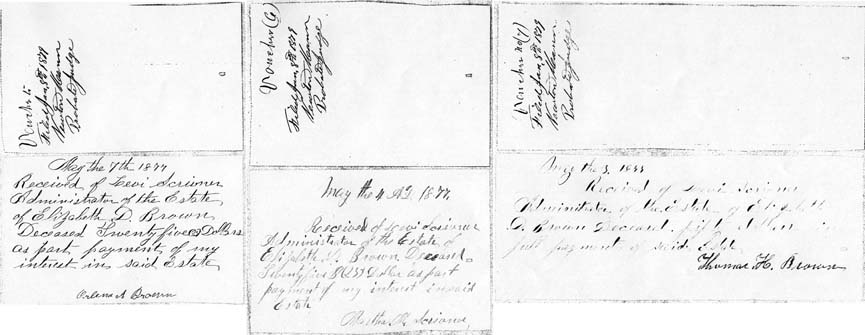 Voucher 5
Filed Jan 8th 1879
Newton
Probate Judge
May the 7th 1877
Received of Levi Scrivner
Administrator of the Estate
of Elizabeth D. Brown
Deceased Twenty five Dollars
as part payment of my
interest in said Estate
Brown
Voucher (6)
Filed Jan 8th 1879
Newton
Probate Judge
May the 4 AD 1877
Received of Levi Scrivner
Administrator of the Estate of
Elizabeth D. Brown Deceased
Dollar as part
payment of my interest in said
Estate
Martha
Voucher no (7)
Filed Jan 8th 1879
Newton
Probate Judge
May the
Received of Levi Scrivner
Administrator of the Estate of Elizabeth
D. Brown Deceased dollars in
full payment of said
Thomas H. Brown